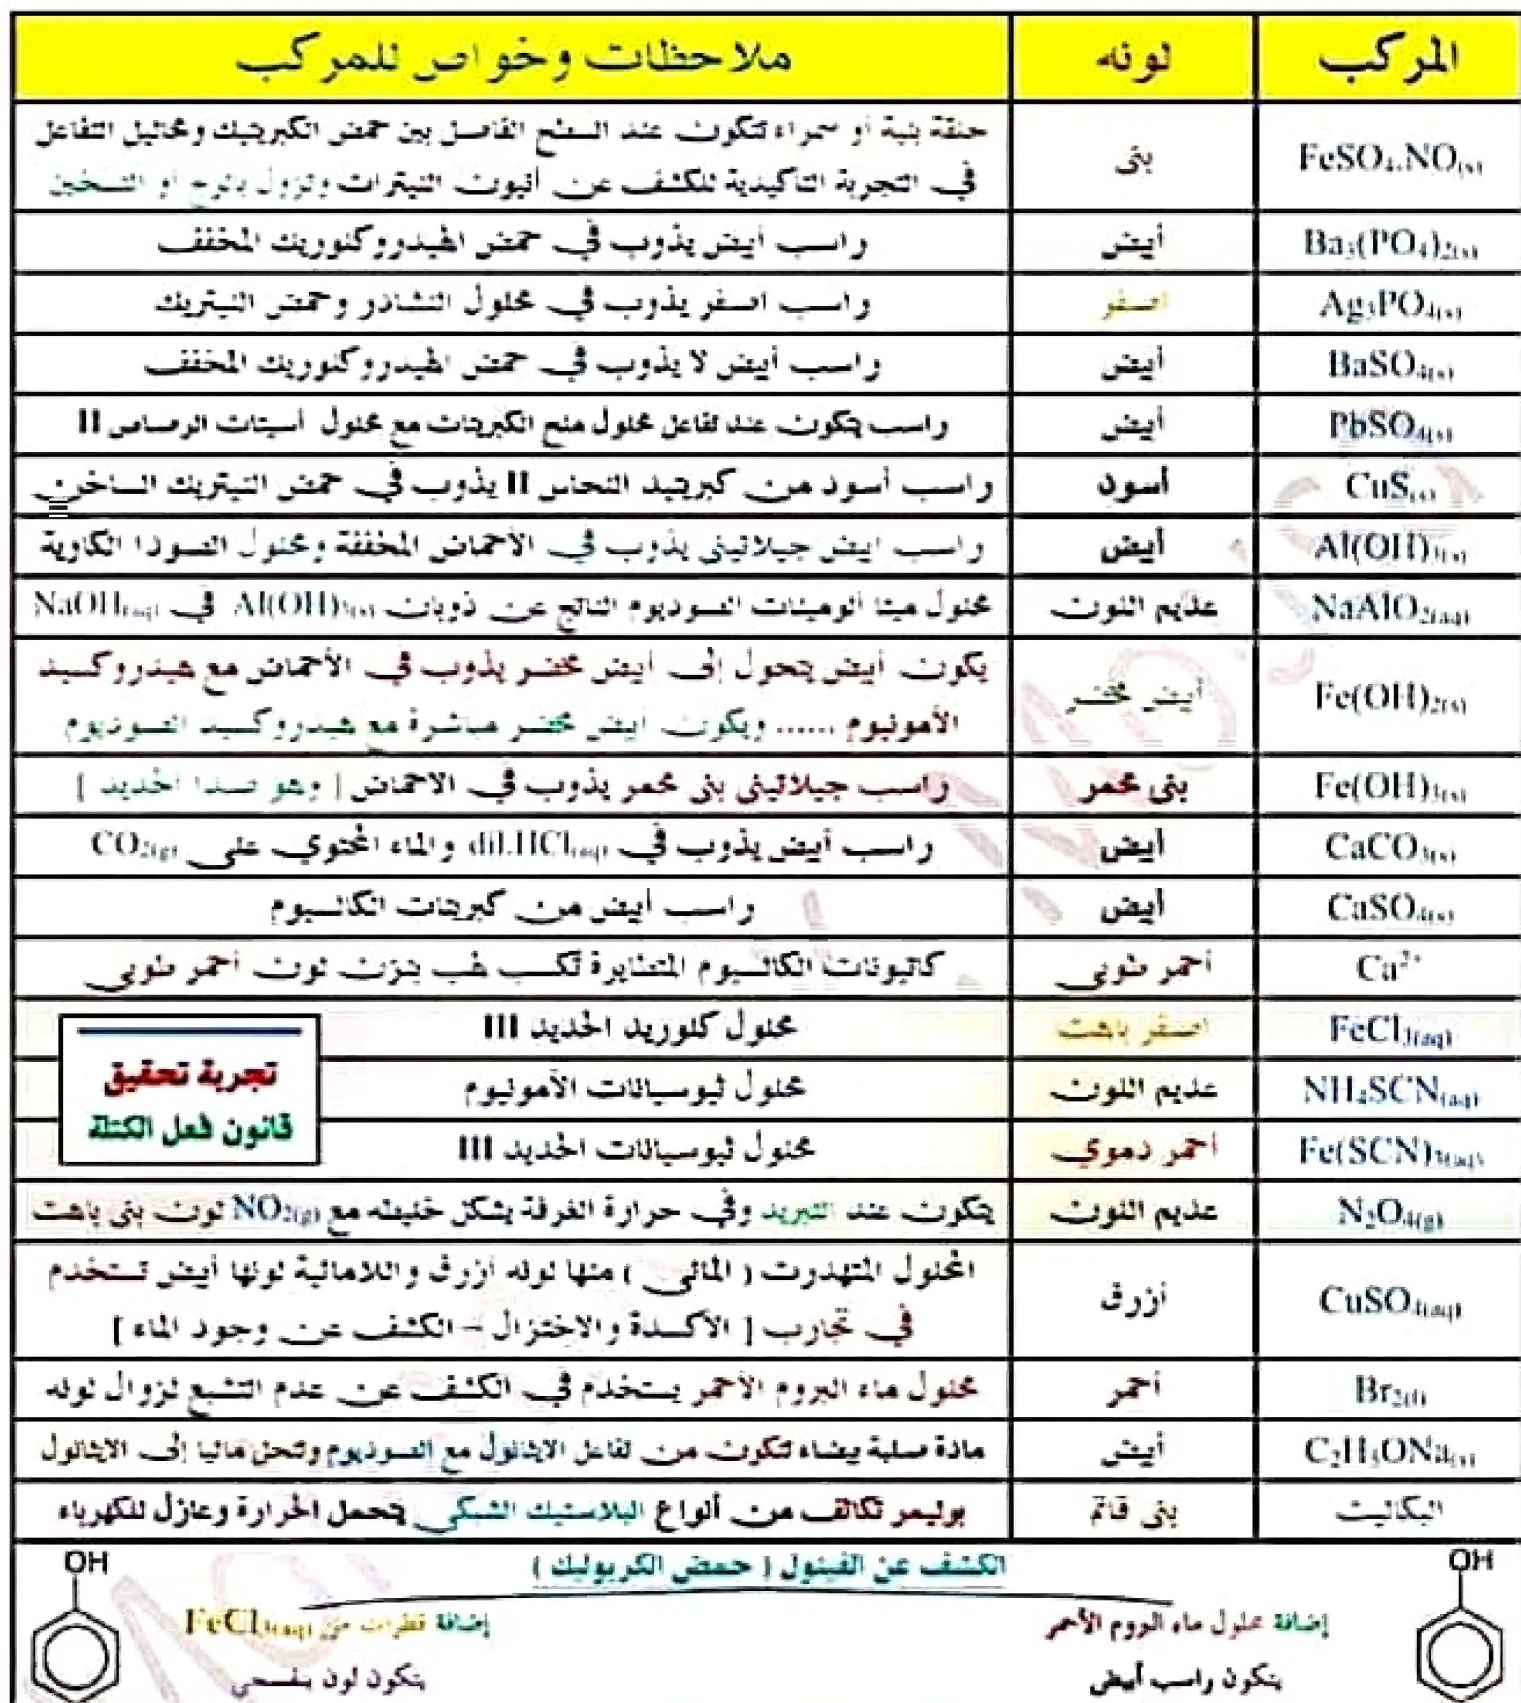 المركب لونه ملاحظات وخواص للمركب
FeSO₄.NO(s) بنى حلقة بنية أو سمراء تتكون عند السطح الفاصل بين حمض الكبريتيك ومحاليل التفاعل
في التجربة التأكيدية للكشف عن أنيون النيترات وتزول بالرج أو التسخين
Ba₃(PO₄)₂(s) أبيض راسب أبيض يذوب في حمض الهيدروكلوريك المخفف
Ag₃PO₄(s) اصفر راسب اصفر يذوب في محلول النشادر وحمض النيتريك
BaSO₄(s) أبيض راسب أبيض لا يذوب في حمض الهيدروكلوريك المخفف
PbSO₄(s) أبيض راسب يتكون عند تفاعل محلول ملح الكبريتات مع محلول أسيتات الرصاص II
CuS(s) أسود راسب أسود من كبريتيد النحاس II يذوب في حمض النيتريك الساخن
Al(OH)₃(s) أبيض راسب ابيض جيلاتينى يذوب في الأحماض المخففة ومحلول الصودا الكاوية
NaAlO₂(aq) عديم اللون محلول ميتا ألومينات الصوديوم الناتج عن ذوبان Al(OH)₃(s) في NaOH(aq)
Fe(OH)₂(s) أبيض مخضر يكون أبيض يتحول إلى أبيض مخضر يذوب في الأحماض مع هيدروكسيد
الأمونيوم ...... ويكون ابيض مخضر مباشرة مع هيدروكسيد الصوديوم
Fe(OH)₃(s) بنى محمر راسب جيلاتينى بنى محمر يذوب في الاحماض [ وهو صدا الحديد ]
CaCO₃(s) أبيض راسب أبيض يذوب في dil.HCl(aq) والماء المحتوي على CO₂(g)
CaSO₄(s) أبيض راسب أبيض من كبريتات الكالسيوم
Ca²⁺ أحمر طوبى كاتيونات الكالسيوم المتطايرة تكسب لهب بنزن لون أحمر طوبى
FeCl₃(aq) اصفر باهت محلول كلوريد الحديد III
NH₄SCN(aq) عديم اللون محلول ثيوسيانات الأمونيوم
Fe(SCN)₃(aq) أحمر دموي محلول ثيوسيانات الحديد III
تجربة تحقيق
قانون فعل الكتلة
N₂O₄(g) عديم اللون يتكون عند التبريد وفي حرارة الغرفة يشكل خليطه مع NO₂(g) لون بنى باهت
CuSO₄(aq) أزرق المحلول المتهدرت ( المائى ) منها لونه أزرق واللامائية لونها أبيض تستخدم
في تجارب [ الأكسدة والاختزال – الكشف عن وجود الماء ]
Br₂(l) أحمر محلول ماء البروم الأحمر يستخدم في الكشف عن عدم التشبع لزوال لونه
C₂H₅ONa(s) أبيض مادة صلبة بيضاء تتكون من تفاعل الايثانول مع الصوديوم وتتحلل مائيا إلى الايثانول
البكاليت بنى قاتم بوليمر تكاثف من ألواع البلاستيك الشبكى يتحمل الحرارة وعازل للكهرباء
الكشف عن الفينول ( حمض الكربوليك )
OH
إضافة محلول ماء البروم الأحمر
يتكون راسب أبيض
إضافة قطرات من FeCl₃(aq)
يتكون لون بنفسجي
OH